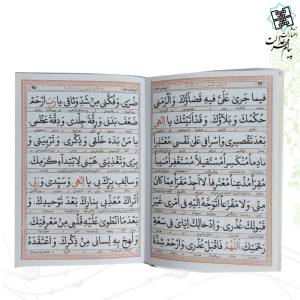 فيما جَرى عَلَيَّ فيهِ قَضاؤُكَ وَ اَلْزَمَنى
حُكْمُكَ وَ بَلاؤُكَ وَ قَدْ اَتَيْتُكَ يا اِلهى
بَعْدَ تَقْصيرى وَ اِسْرافى عَلى نَفْسى مُعْتَذِراً
نادِماً مُنْكَسِراً مُسْتَقيلاً مُسْتَغْفِراً مُنيباً
مُقِرّاً مُذْعِناً مُعْتَرِفاً لا اَجِدُ مَفَرّاً مِمّا كانَ
مِنّى وَ لا مَفْزَعاً اَتَوَجَّهُ اِلَيْهِ فى اَمْرى غَيْرَ
قَبُولِكَ عُذْرى وَ اِدْخالِكَ اِيّاىَ فى سَعَةِ
رَحْمَتِكَ اَللّهُمَّ فَاقْبَلْ عُذْرى وَ ارْحَمْ شِدَّةَ
ضُرّى وَ فُكَّنى مِنْ شَدِّ وَثاقى يا رَبِّ ارْحَمْ
ضَعْفَ بَدَنى وَ رِقَّةَ جِلْدى وَ دِقَّةَ عَظْمى
يا مَنْ بَدَءَ خَلْقى وَ ذِكْرى وَ تَرْبِيَتى وَ
بِرّى وَ تَغْذِيَتى هَبْنى لِابْتِداءِ كَرَمِكَ
وَ سالِفِ بِرِّكَ بى يا اِلهى وَ سَيِّدى وَ رَبّى
اَتُراكَ مُعَذِّبى بِنارِكَ بَعْدَ تَوْحيدِكَ وَ
بَعْدَ مَا انْطَوى عَلَيْهِ قَلْبى مِنْ مَعْرِفَتِكَ
وَ لَهِجَ بِهِ لِسانى مِنْ ذِكْرِكَ وَ اعْتَقَدَهُ